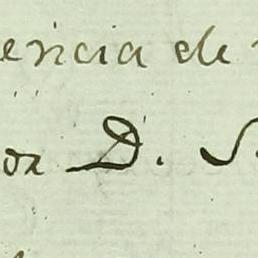 encia de
or D. S